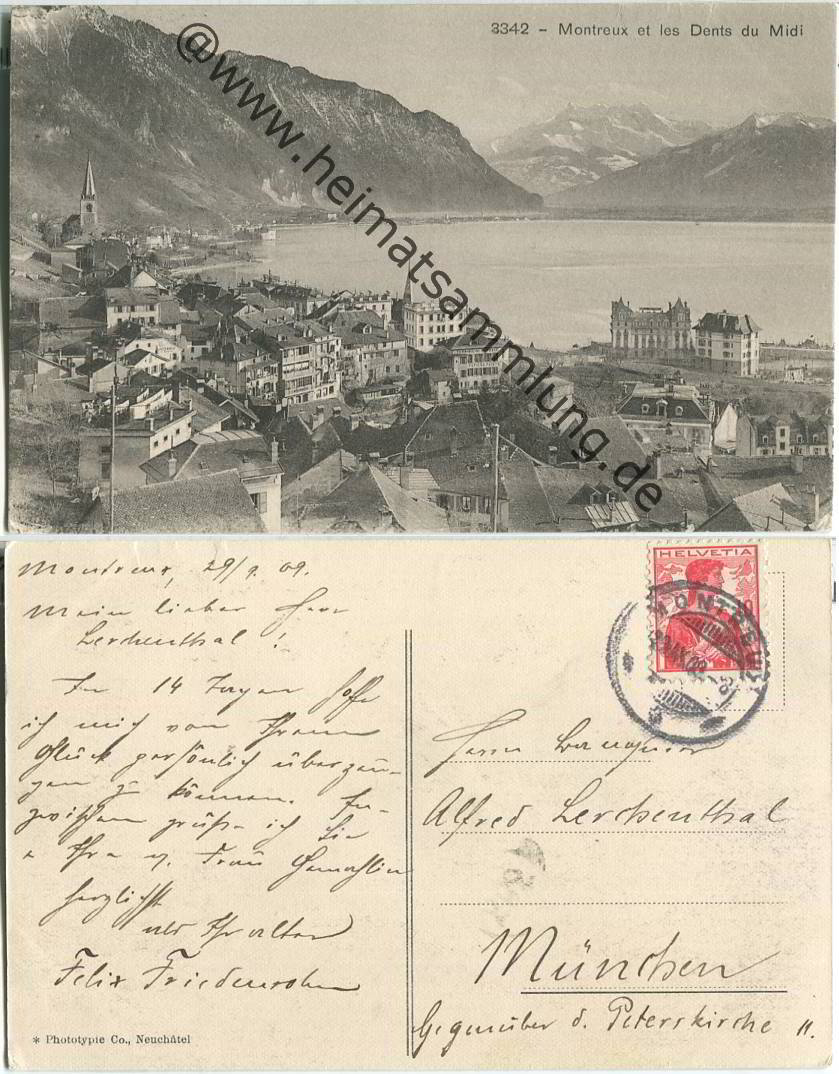 3342 - Montreux et les Dents du Midi
@www.heimatsammlung.de
Montreux, 29/9. 09.
Mein lieber Herr
Lerchenthal!
In 14 Tagen hoffe
ich mich von Ihrem
Glück persönlich überzeu-
gen zu können. In-
zwischen grüße ich Sie
u. Frau Gemahlin
herzlichst
als Ihr alter
Felix
* Phototypie Co., Neuchâtel
HELVETIA
MONTREUX
Herrn
Alfred Lerchenthal
München
Gegenüber d. Peterskirche 11.